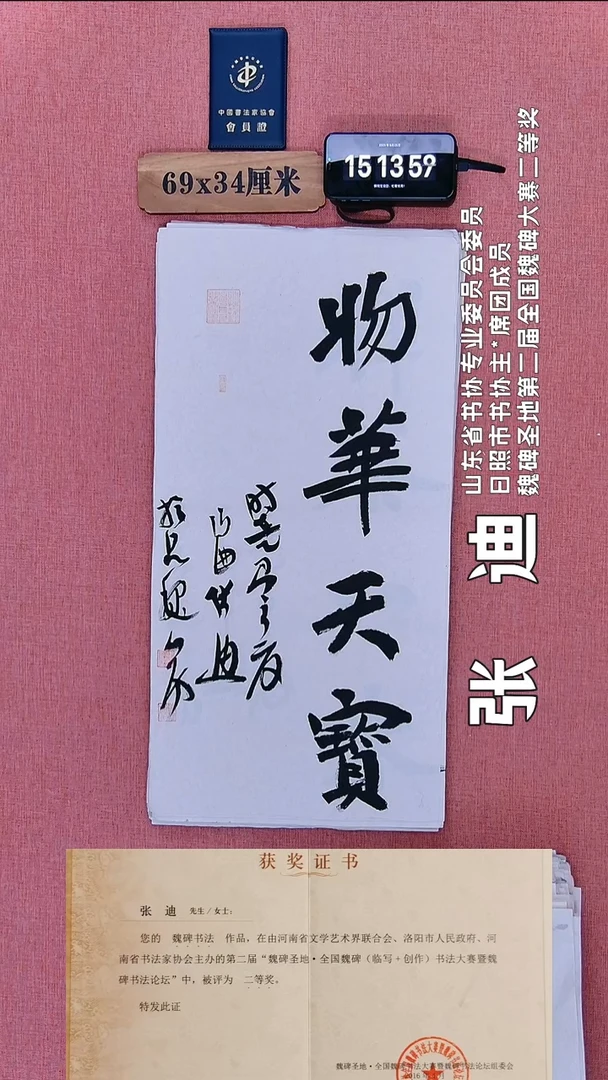 中國書法家協會
會員證
69x34厘米
15 13 59
山东省书协专业委员会委员
日照市书协主*席团成员
魏碑圣地第二届全国魏碑大赛二等奖
张 迪
物華天寶
获奖证书
张 迪 先生/女士:
您的 魏碑书法 作品,在由河南省文学艺术界联合会、洛阳市人民政府、河
南省书法家协会主办的第二届“魏碑圣地·全国魏碑(临写+创作)书法大赛暨魏
碑书法论坛”中,被评为 二等奖。
特发此证
魏碑圣地·全国魏碑书法大赛暨魏碑书法论坛组委会